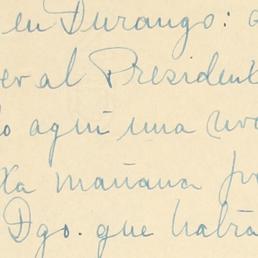 en Durango:
er al President
o aqui una
mañana
Dgo. que habra